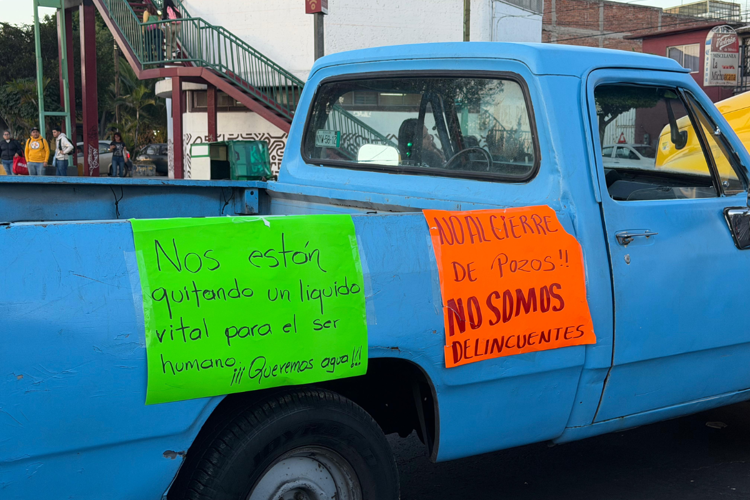 Nos están
quitando un liquido
vital para el ser
humano. ¡¡¡Queremos agua!!!
NO AL CIERRE
DE POZOS!!
NO SOMOS
DELINCUENTES